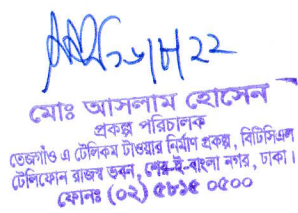 ২১/৮/22
মোঃ আসলাম হোসেন
প্রকল্প পরিচালক
তেজগাঁও এ টেলিকম টাওয়ার নির্মাণ প্রকল্প, বিটিসিএল
টেলিফোন রাজস্ব ভবন, শের-ই-বাংলা নগর, ঢাকা।
ফোনঃ (০২) ৫৮১৫ ০৫০০